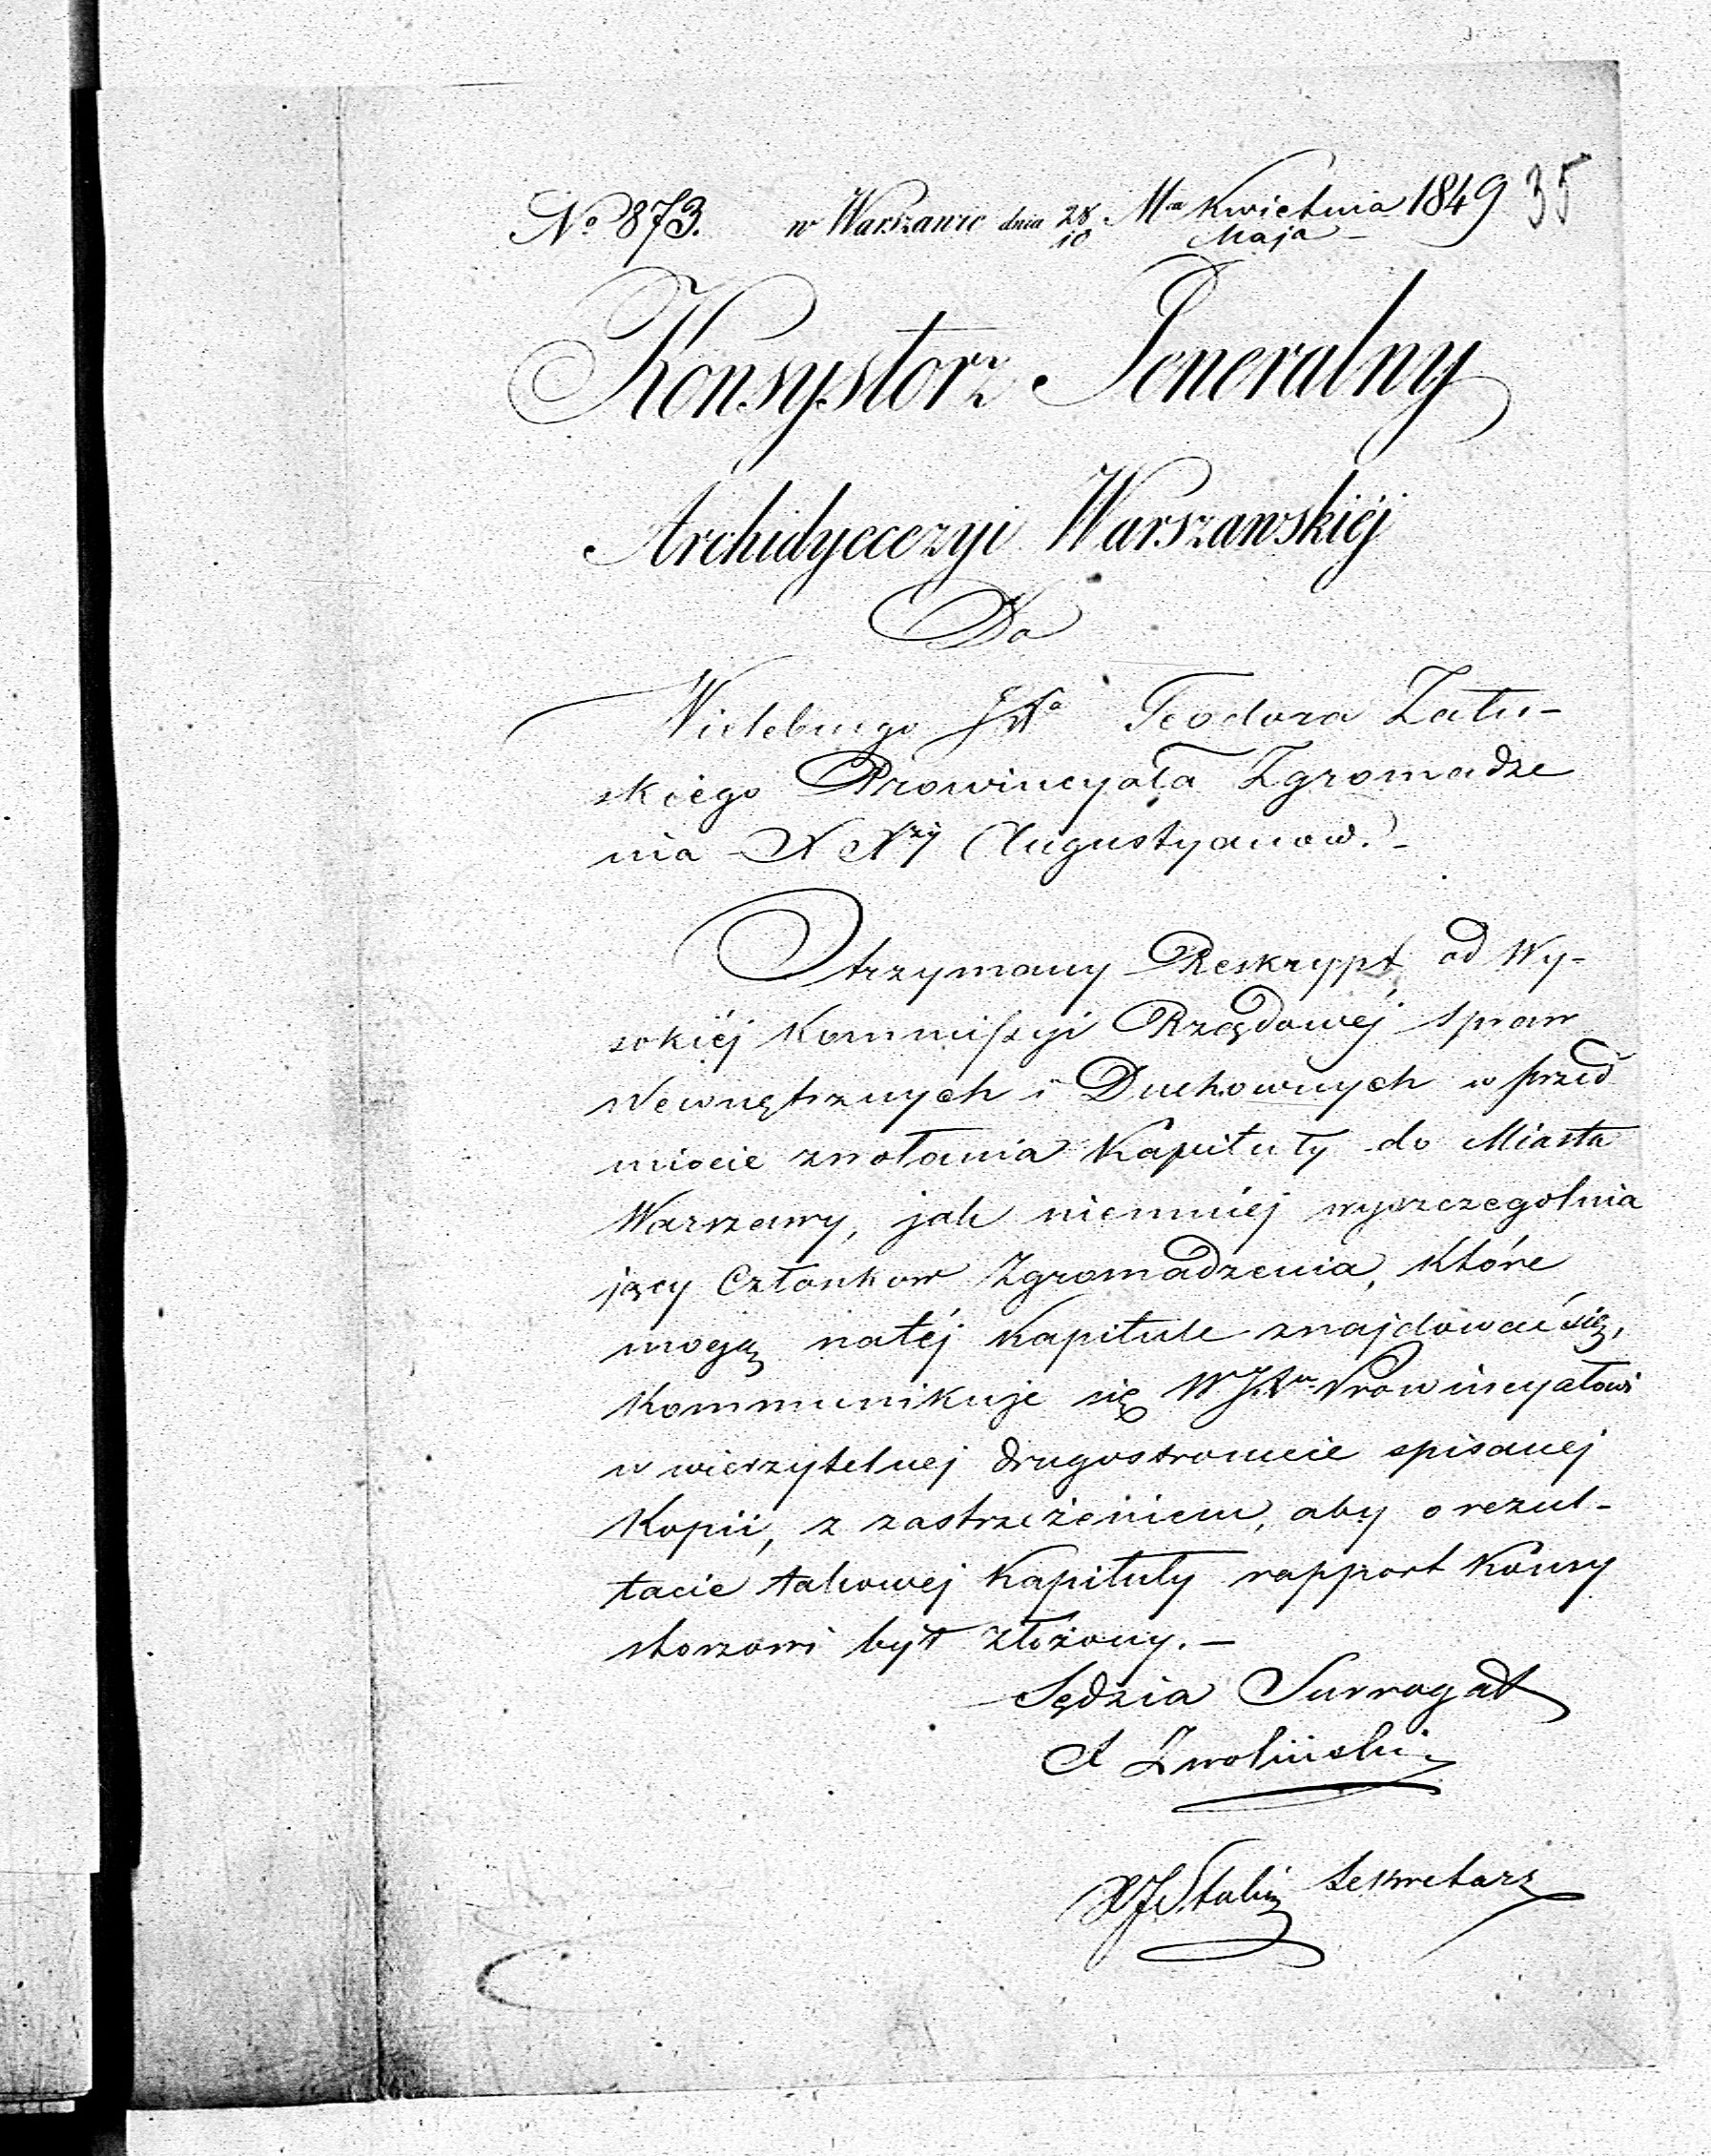 No 873. w Warszawie dnia 28/10 Mca Kwietnia/Maja 1849 35
Konsystorz Jeneralny
Archidyecezyi Warszawskiéj
Do
Wielebnego JXa Teodora Zału-
skiego Prowincyała Zgromadze
nia XXży Augustyanow.-
Otrzymany Reskrypt, od Wy-
sokiéj Kommissyi Rządowéj Spraw
Wewnętrznych i Duchownych w przed
miocie zwołania Kapituły do Miasta
Warszawy, jak niemniéj wyszczegolnia
jący Członkow Zgromadzenia, które
mogą natéj Kapitule znajdować się,
Kommunikuje się WJXu Prowincyałowi
w wierzytelnej drugostronnie spisanej
Kopii, z zastrzeżeniem, aby o rezul-
tacie takowej Kapituły rapport Konsy
storzowi był złożony.-
Sędzia Surrogat
A Zwoliński
XJ Sekretarz